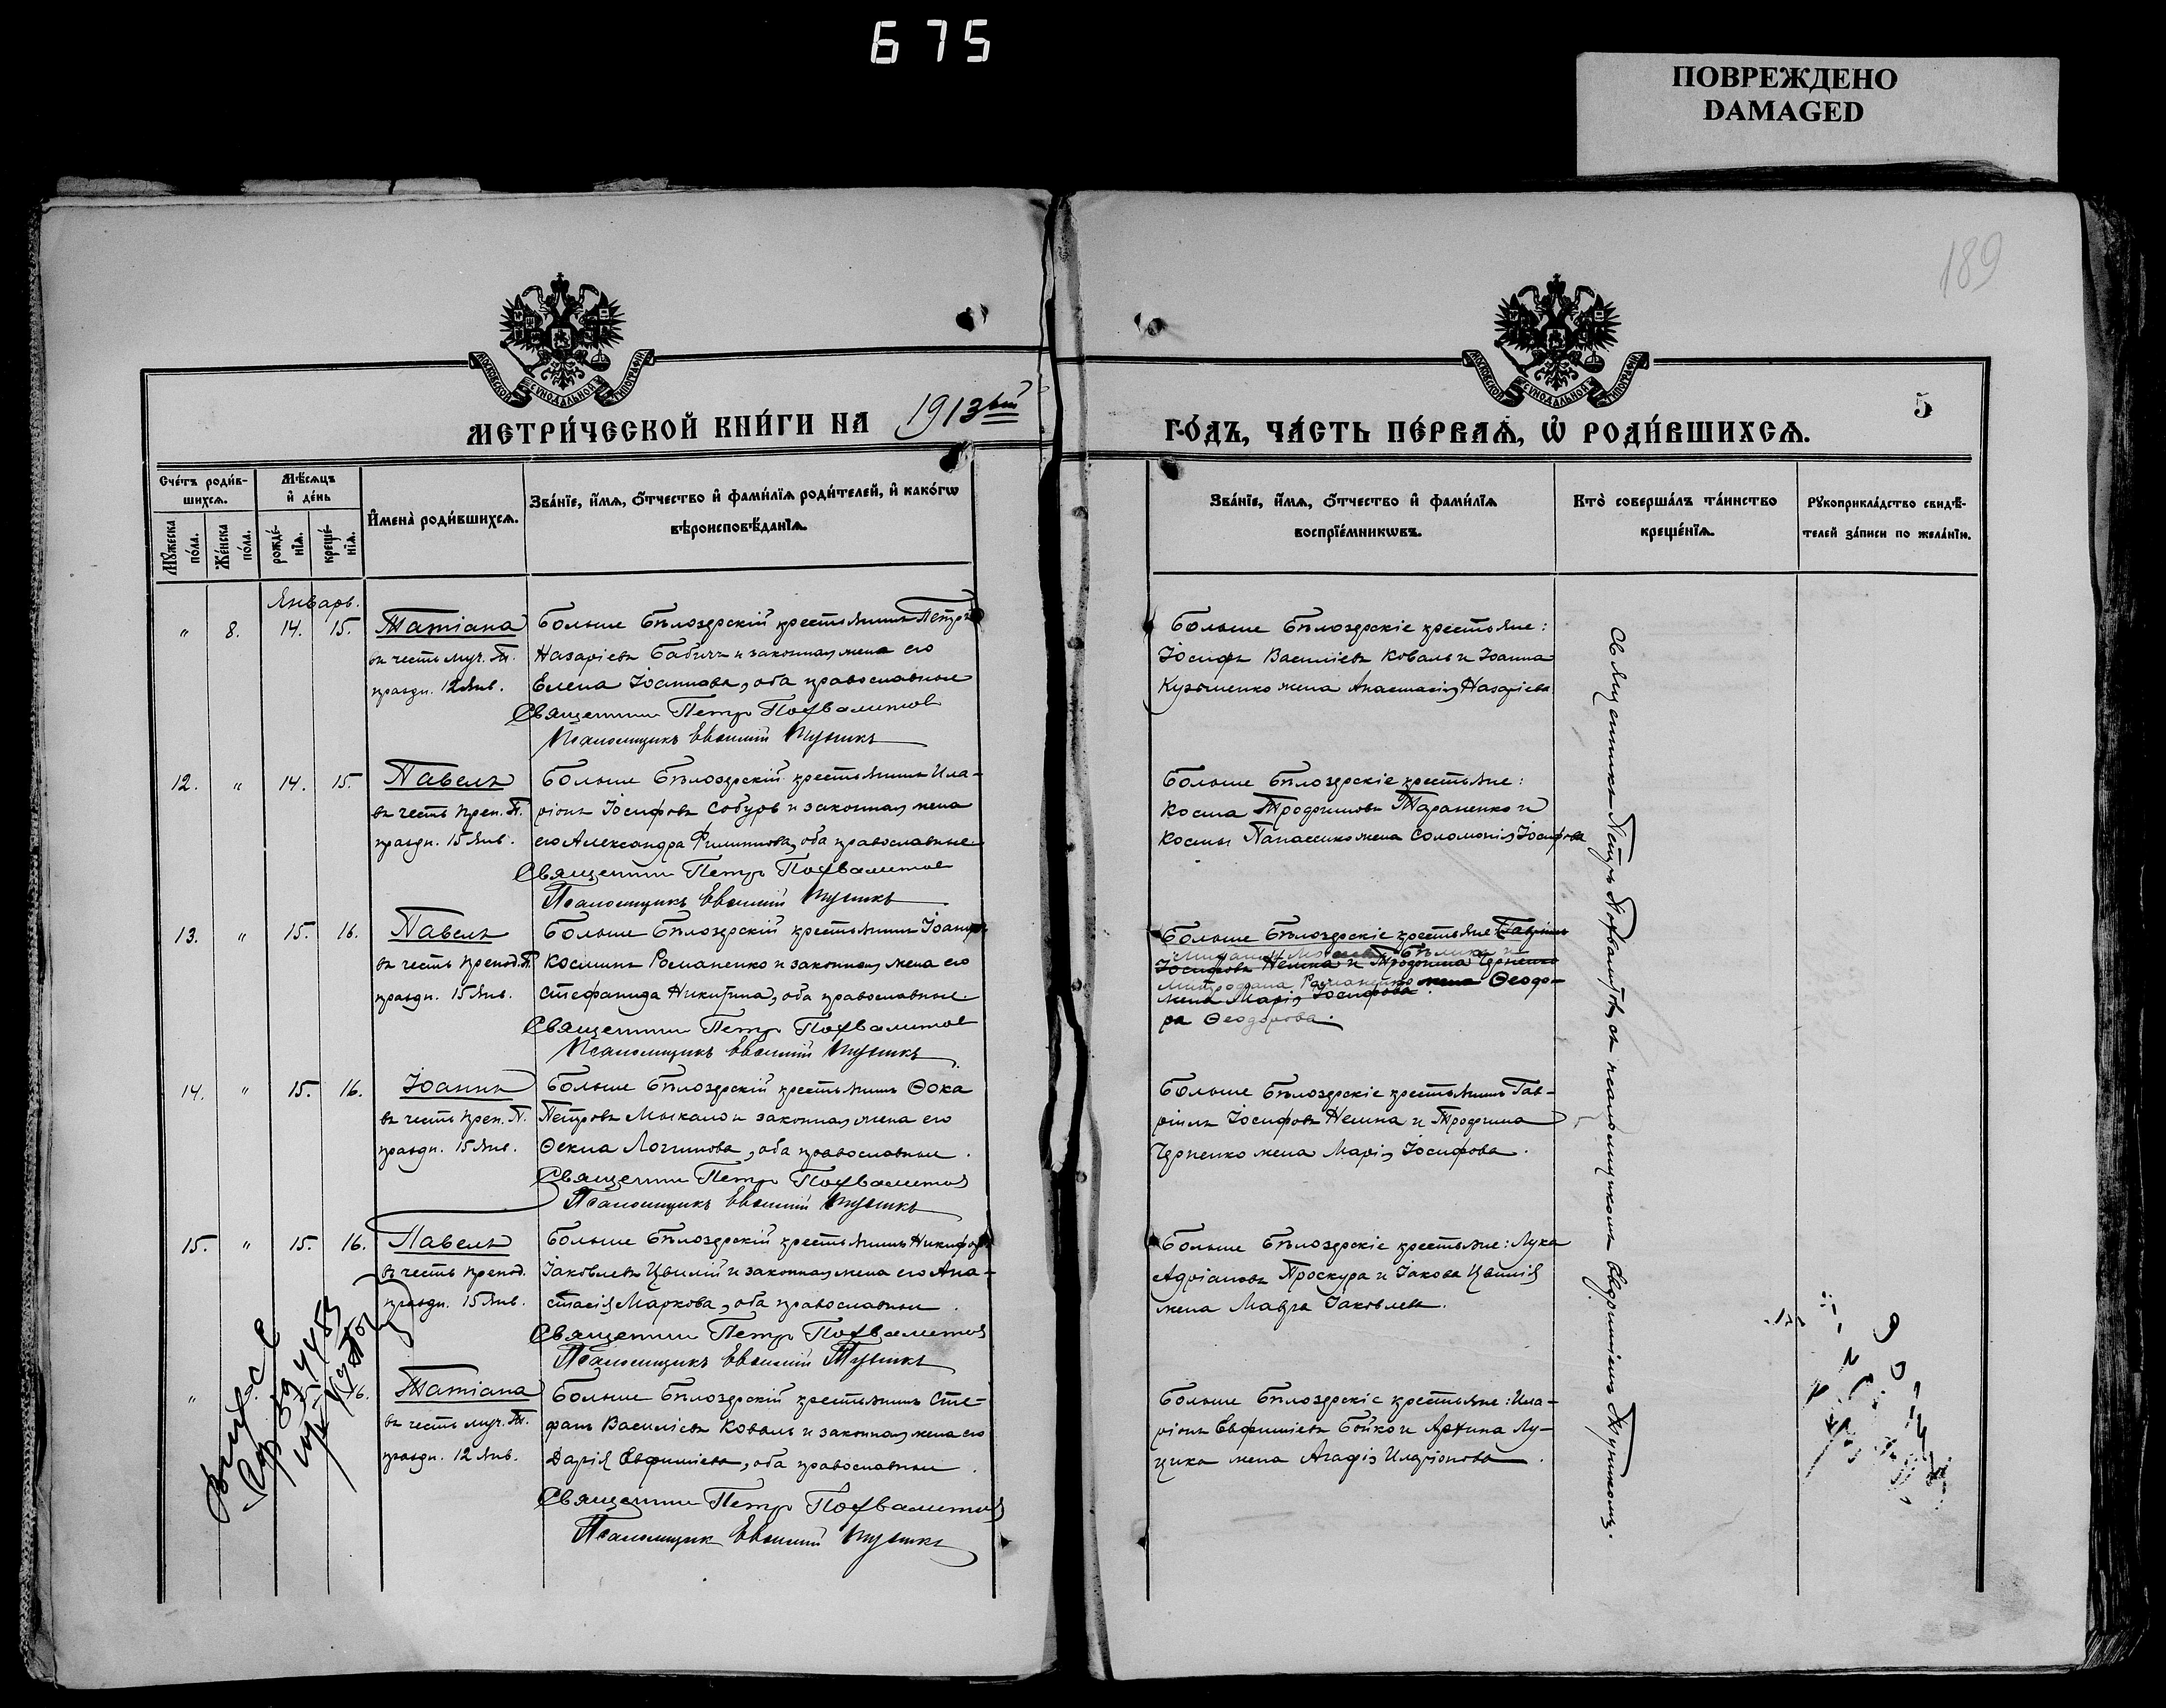 675
ПОВРЕЖДЕНО
DAMAGED
189
МОСКОВСКОЙ СѴНОДАЛЬНОЙ ТИПОГРАФІИ
МОСКОВСКОЙ СѴНОДАЛЬНОЙ ТИПОГРАФІИ
МЕТРИ́ЧЕСКОЙ КНИ́ГИ НА 1913ый
ГО́ДЪ, ЧА́СТЬ ПЕ́РВАЯ, Ѡ РОДИ́ВШИХСЯ.
5
Сче́тъ роди́в-
шихся.
Му́жеска
по́ла.
Же́нска
по́ла.
Мѣ́сяцъ
и де́нь
рожде́-
нія.
креще́-
нія.
Имена̀ роди́вшихся.
Зва́ніе, и́мя, о́тчество и фами́лія роди́телей, и како́гѡ
вѣроисповѣ́данія.
Зва́ніе, и́мя, о́тчество и фами́лія
воспріе́мникѡвъ.
Кто̀ соверша́лъ та́инство
креще́нія.
Рукоприкла́дство свидѣ́-
телей за́писи по жела́нію.
Январь.
" 8. 14. 15. Татіана
въ честь муч. Т.
праздн. 12 Янв.
Больше Бѣлозерскій крестьянинъ Петръ
Назаріевъ Бабичъ и законная жена его
Елена Іоаннова, оба православные
Священникъ Петр Похвалитов
Псаломщикъ Евфимій Тупикъ
Больше Бѣлозерскіе крестьяне:
Іосифъ Василіевъ Коваль и Іоанна
Кузьменко жена Анастасія Назаріева
12. " 14. 15. Павелъ
въ честь преп. П.
праздн. 15 Янв.
Больше Бѣлозерскій крестьянинъ Ила-
ріонъ Іосифовъ Собуръ и законная жена
его Александра Филиппова, оба православные
Священникъ Петр Похвалитов
Псаломщикъ Евфимій Тупикъ
Больше Бѣлозерскіе крестьяне:
Косма Трофимовъ Тараненко и
Космы Панасенко жена Соломонія Іосифова
13. " 15. 16. Павелъ
въ честь препод. П.
праздн. 15 Янв.
Больше Бѣлозерскій крестьянинъ Іоаннъ
Косминъ Романенко и законная жена его
Стефанида Никитина, оба православные.
Священникъ Петр Похвалитов
Псаломщикъ Евфимій Тупикъ
Больше Бѣлозерскіе крестьяне Гавріилъ
Іосифовъ Немна и Трофима Черненко
Митрофана Романенко жена Ѳеодо-
жена Марія Іосифова
ра Ѳеодорова.
14. " 15. 16. Іоаннъ
въ честь преп. П.
праздн. 15 Янв.
Больше Бѣлозерскій крестьянинъ Ѳока
Петровъ Мыкало и законная жена его
Ѳекла Логинова, оба православные.
Священникъ Петр Похвалитов
Псаломщикъ Евфимій Тупикъ
Больше Бѣлозерскіе крестьянинъ Гав-
ріилъ Іосифовъ Немна и Трофима
Черненко жена Марія Іосифова.
15. " 15. 16. Павелъ
въ честь препод.
праздн. 15 Янв.
Больше Бѣлозерскій крестьянинъ Никифоръ
Іаковлевъ Цвилій и законная жена его Ана-
стасія Маркова, оба православные.
Священникъ Петр Похвалитов
Псаломщикъ Евфимій Тупикъ
Больше Бѣлозерскіе крестьяне: Лука
Адріановъ Проскура и Іакова Цвилія
жена Мавра Іаковлева.
" 16. Татіана
въ честь муч. Т.
праздн. 12 Янв.
Больше Бѣлозерскій крестьянинъ Сте-
фанъ Василіевъ Коваль и законная жена его
Дарія Евфиміева, оба православные.
Священникъ Петр Похвалитов
Псаломщикъ Евфимій Тупикъ
Больше Бѣлозерскіе крестьяне: Ила-
ріонъ Евфиміевъ Бойко и Архипа Лу-
цика жена Агафія Иларіонова.
Священникъ Петръ Похвалитовъ, съ псаломщикомъ Евфиміемъ Тупикомъ.